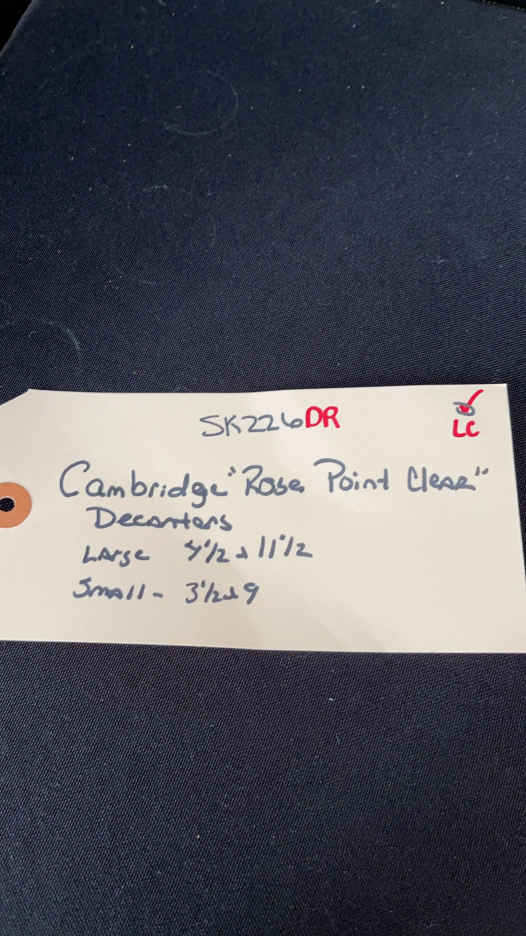 SK226DR
LC
Cambridge "Rose Point Clear"
Decanters
Large 4 1/2 x 11 1/2
Small - 3 1/2 x 9